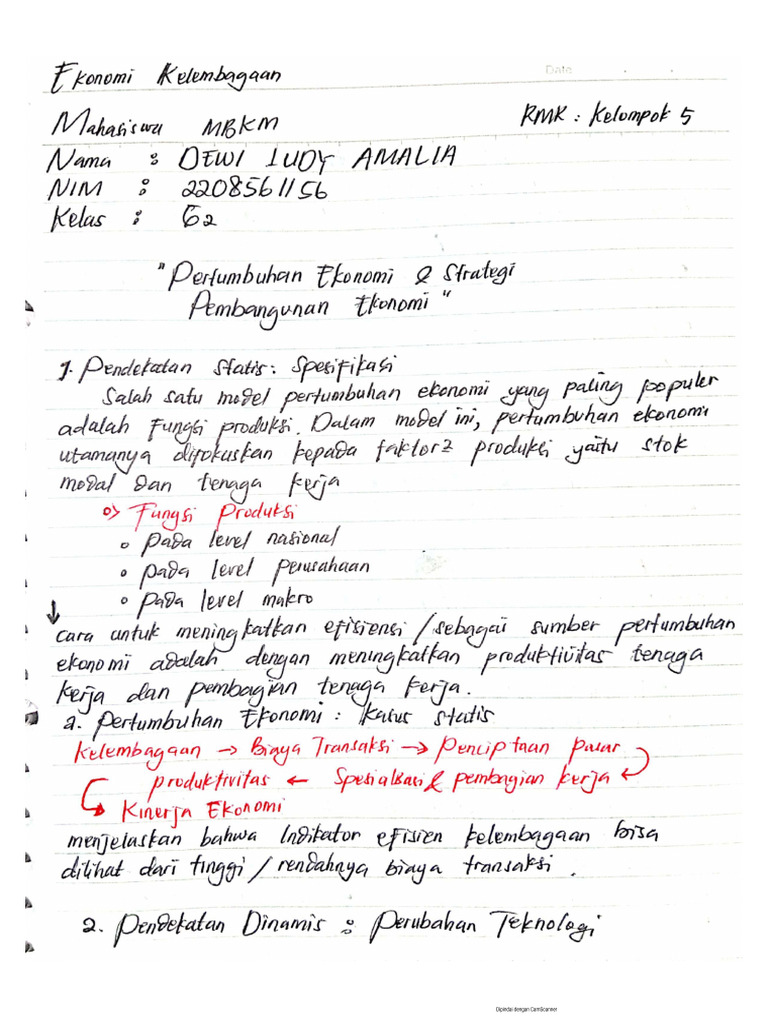 Date
Ekonomi Kelembagaan
Mahasiswa MBKM
RMK : Kelompok 5
Nama : DEWI IUDY AMALIA
NIM : 2208561156
Kelas : G2
"Pertumbuhan Ekonomi & Strategi
Pembangunan Ekonomi"
1. Pendekatan Statis: Spesifikasi
Salah satu model pertumbuhan ekonomi yang paling populer
adalah fungsi produksi. Dalam model ini, pertumbuhan ekonomi
utamanya difokuskan kepada faktor2 produksi yaitu stok
modal dan tenaga kerja
Fungsi Produksi
o pada level nasional
o pada level perusahaan
o pada level makro
↓
cara untuk meningkatkan efisiensi / sebagai sumber pertumbuhan
ekonomi adalah dengan meningkatkan produktivitas tenaga
kerja dan pembagian tenaga kerja.
a. Pertumbuhan Ekonomi : Kasus Statis
Kelembagaan → Biaya Transaksi → Penciptaan pasar
produktivitas ← Spesialisasi & pembagian kerja
Kinerja Ekonomi
menjelaskan bahwa Indikator efisien kelembagaan bisa
dilihat dari tinggi / rendahnya biaya transaksi.
2. Pendekatan Dinamis : Perubahan Teknologi
Dipindai dengan CamScanner